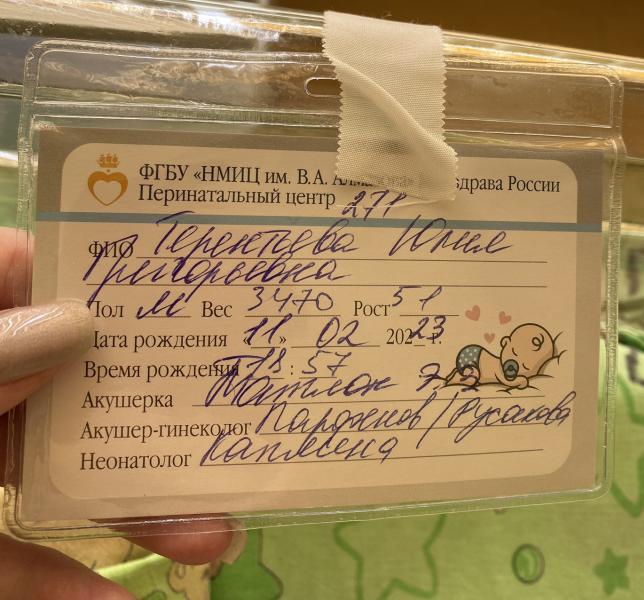 ФГБУ «НМИЦ им. В.А. Алмазова» здрава России
Перинатальный центр 271
ФИО Терентьева Юлия
Григорьевна
Пол М Вес 3470 Рост 51
Дата рождения «11» 02 2023 г.
Время рождения 18 : 57
Акушерка
Акушер-гинеколог Парфенов / Русакова
Неонатолог